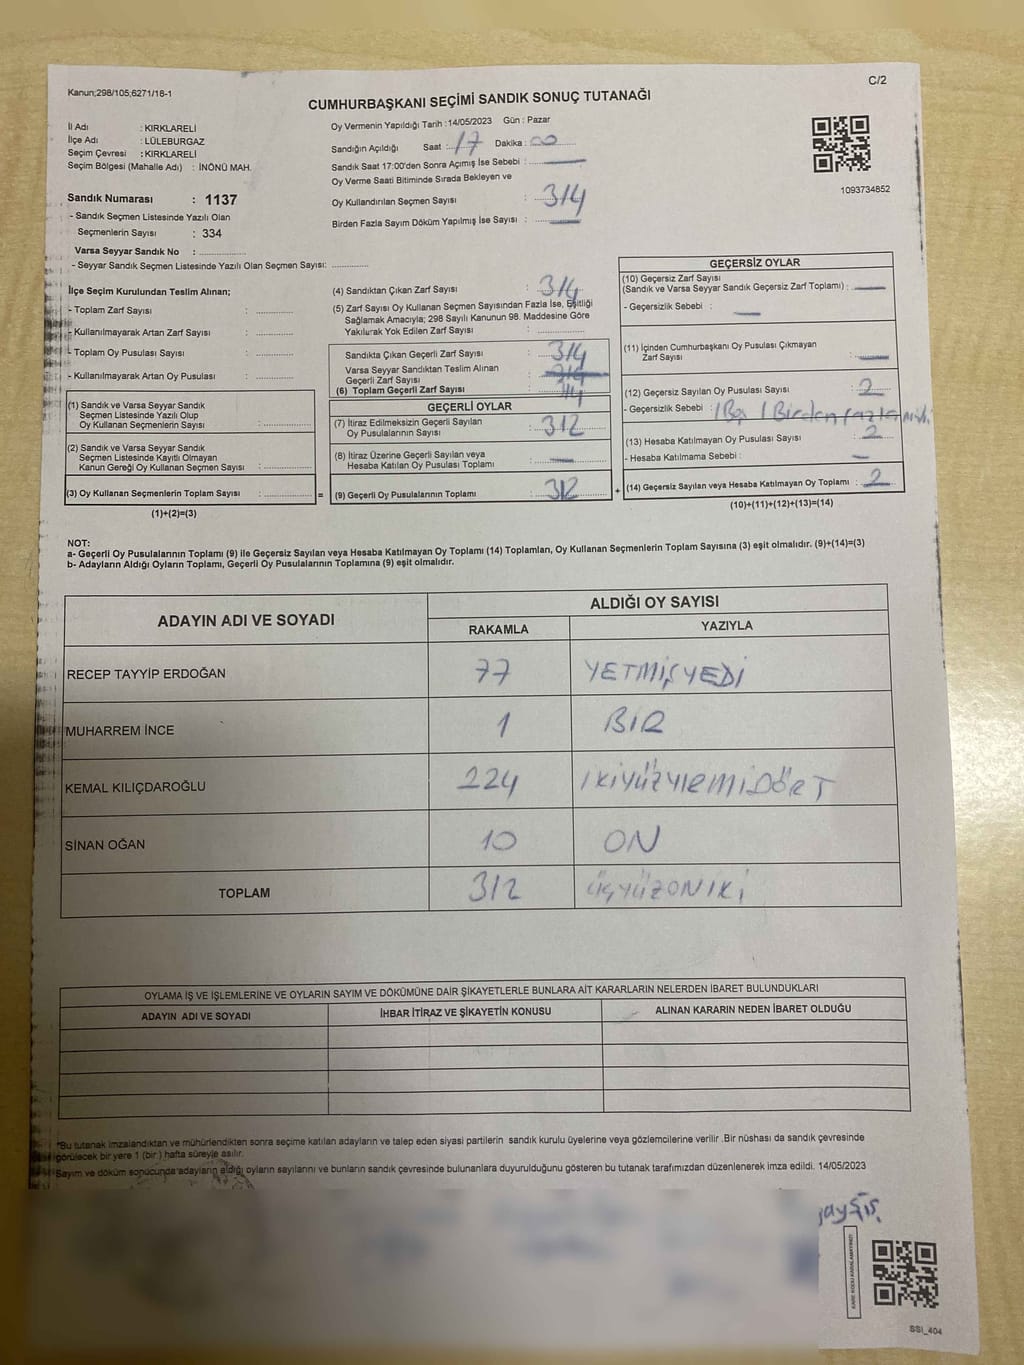 C/2
Kanun;298/105,6271/18-1
CUMHURBAŞKANI SEÇİMİ SANDIK SONUÇ TUTANAĞI
İl Adı : KIRKLARELİ
İlçe Adı : LÜLEBURGAZ
Seçim Çevresi : KIRKLARELİ
Seçim Bölgesi (Mahalle Adı) : İNÖNÜ MAH.
Sandık Numarası : 1137
- Sandık Seçmen Listesinde Yazılı Olan
Seçmenlerin Sayısı : 334
Varsa Seyyar Sandık No : ..............
- Seyyar Sandık Seçmen Listesinde Yazılı Olan Seçmen Sayısı: ............
Oy Vermenin Yapıldığı Tarih : 14/05/2023 Gün : Pazar
Sandığın Açıldığı Saat : 17 Dakika : 00
Sandık Saat 17:00'den Sonra Açımış İse Sebebi :
Oy Verme Saati Bitiminde Sırada Bekleyen ve
Oy Kullandırılan Seçmen Sayısı : 314
Birden Fazla Sayım Döküm Yapılmış İse Sayısı :
1093734852
İlçe Seçim Kurulundan Teslim Alınan;
- Toplam Zarf Sayısı : ............
- Kullanılmayarak Artan Zarf Sayısı : ............
- Toplam Oy Pusulası Sayısı : ............
- Kullanılmayarak Artan Oy Pusulası : ............
(1) Sandık ve Varsa Seyyar Sandık
Seçmen Listesinde Yazılı Olup
Oy Kullanan Seçmenlerin Sayısı : ............
(2) Sandık ve Varsa Seyyar Sandık
Seçmen Listesinde Kayıtlı Olmayan
Kanun Gereği Oy Kullanan Seçmen Sayısı : ............
(3) Oy Kullanan Seçmenlerin Toplam Sayısı : ............ =
(1)+(2)=(3)
(4) Sandıktan Çıkan Zarf Sayısı : 314
(5) Zarf Sayısı Oy Kullanan Seçmen Sayısından Fazla İse, Eşitliği
Sağlamak Amacıyla; 298 Sayılı Kanunun 98. Maddesine Göre
Yakılurak Yok Edilen Zarf Sayısı : ............
Sandıkta Çıkan Geçerli Zarf Sayısı : 314
Varsa Seyyar Sandıktan Teslim Alınan
Geçerli Zarf Sayısı :
(6) Toplam Geçerli Zarf Sayısı :
GEÇERLİ OYLAR
(7) İtiraz Edilmeksizin Geçerli Sayılan
Oy Pusulalarının Sayısı : 312
(8) İtiraz Üzerine Geçerli Sayılan veya
Hesaba Katılan Oy Pusulası Toplamı :
(9) Geçerli Oy Pusulalarının Toplamı : 312 +
GEÇERSİZ OYLAR
(10) Geçersiz Zarf Sayısı
(Sandık ve Varsa Seyyar Sandık Geçersiz Zarf Toplamı) :
- Geçersizlik Sebebi :
(11) İçinden Cumhurbaşkanı Oy Pusulası Çıkmayan
Zarf Sayısı :
(12) Geçersiz Sayılan Oy Pusulası Sayısı : 2
- Geçersizlik Sebebi : 1 Boş 1 Birden fazla
(13) Hesaba Katılmayan Oy Pusulası Sayısı : 2
- Hesaba Katılmama Sebebi :
(14) Geçersiz Sayılan veya Hesaba Katılmayan Oy Toplamı : 2
(10)+(11)+(12)+(13)=(14)
NOT:
a- Geçerli Oy Pusulalarının Toplamı (9) ile Geçersiz Sayılan veya Hesaba Katılmayan Oy Toplamı (14) Toplamları, Oy Kullanan Seçmenlerin Toplam Sayısına (3) eşit olmalıdır. (9)+(14)=(3)
b- Adayların Aldığı Oyların Toplamı, Geçerli Oy Pusulalarının Toplamına (9) eşit olmalıdır.
ADAYIN ADI VE SOYADI
ALDIĞI OY SAYISI
RAKAMLA YAZIYLA
RECEP TAYYİP ERDOĞAN 77 YETMİŞYEDİ
MUHARREM İNCE 1 BIR
KEMAL KILIÇDAROĞLU 224 İKİYÜZYİRMİDÖRT
SİNAN OĞAN 10 ON
TOPLAM 312 ÜÇYÜZONİKİ
OYLAMA İŞ VE İŞLEMLERİNE VE OYLARIN SAYIM VE DÖKÜMÜNE DAİR ŞİKAYETLERLE BUNLARA AİT KARARLARIN NELERDEN İBARET BULUNDUKLARI
ADAYIN ADI VE SOYADI İHBAR İTİRAZ VE ŞİKAYETİN KONUSU ALINAN KARARIN NEDEN İBARET OLDUĞU
*Bu tutanak imzalandıktan ve mühürlendikten sonra seçime katılan adayların ve talep eden siyasi partilerin sandık kurulu üyelerine veya gözlemcilerine verilir .Bir nüshası da sandık çevresinde
görülecek bir yere 1 (bir) hafta süreyle asılır.
Sayım ve döküm sonucunda adayların aldığı oyların sayılarını ve bunların sandık çevresinde bulunanlara duyurulduğunu gösteren bu tutanak tarafımızdan düzenlenerek imza edildi. 14/05/2023
SSI_404